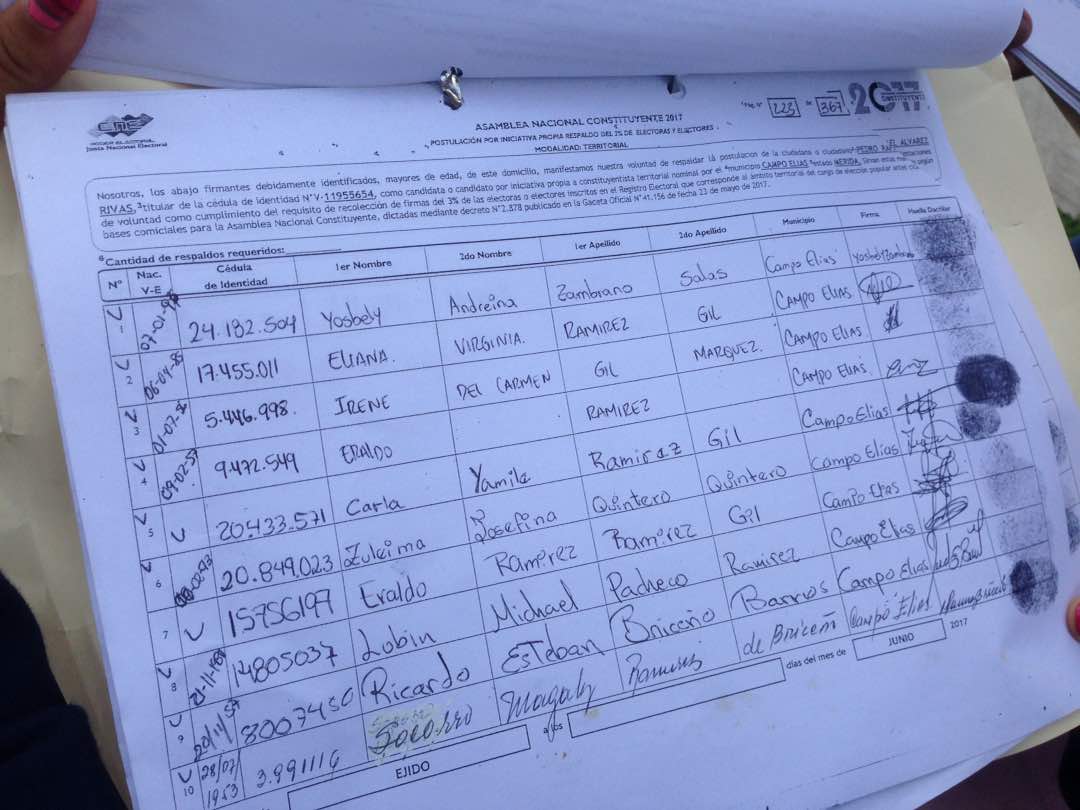 CNE
PODER ELECTORAL
Junta Nacional Electoral
ASAMBLEA NACIONAL CONSTITUYENTE 2017
POSTULACIÓN POR INICIATIVA PROPIA RESPALDO DEL 3% DE ELECTORAS Y ELECTORES
MODALIDAD: TERRITORIAL
223 de 367
2017
CONSTITUYENTE
Nosotros, los abajo firmantes debidamente identificados, mayores de edad, de este domicilio, manifestamos nuestra voluntad de respaldar la postulación de la ciudadana o ciudadano PEDRO EL ALVAREZ
RIVAS, titular de la cédula de identidad N°V-11955654, como candidata o candidato por iniciativa propia a constituyentista territorial nominal por el municipio CAMPO ELIAS estado MERIDA.
de voluntad como cumplimiento del requisito de recolección de firmas del 3% de las electoras o electores inscritos en el Registro Electoral que corresponde al ámbito territorial del cargo de elección popular antes
bases comiciales para la Asamblea Nacional Constituyente, dictadas mediante decreto N°2.878 publicado en la Gaceta Oficial N°41.156 de fecha 23 de mayo de 2017.
Cantidad de respaldos requeridos:
N° Nac. V-E Cédula de Identidad 1er Nombre 2do Nombre 1er Apellido 2do Apellido Municipio Firma Huella Dactilar
1 V 24.132.504 Yosbely Andreina Zambrano Salas Campo Elias
2 V 06-04-85 17.455.011 ELIANA. VIRGINIA. RAMIREZ GIL CAMPO ELIAS
3 V 5.446.998. IRENE DEL CARMEN GIL MARQUEZ. CAMPO ELIAS
4 V 9.472.549 ERALDO RAMIREZ CAMPO ELIAS.
5 V 20.433.571 Carla Yamile Ramirez Gil Campo Elias
6 V 20.849.023 Zuleima Josefina Quintero Quintero Campo Elias
7 V 15756197 Eraldo Ramirez Ramirez Gil Campo Elias
8 V 14805037 Lobin Michael Pacheco Ramirez Campo Elias
9 V 8007450 Ricardo Esteban Briceño Barros Campo Elias
10 V 28/07/1953 3.991114 Socorro Magaly Ramirez de Briceñ Campo Elias
EJIDO a los días del mes de JUNIO 2017